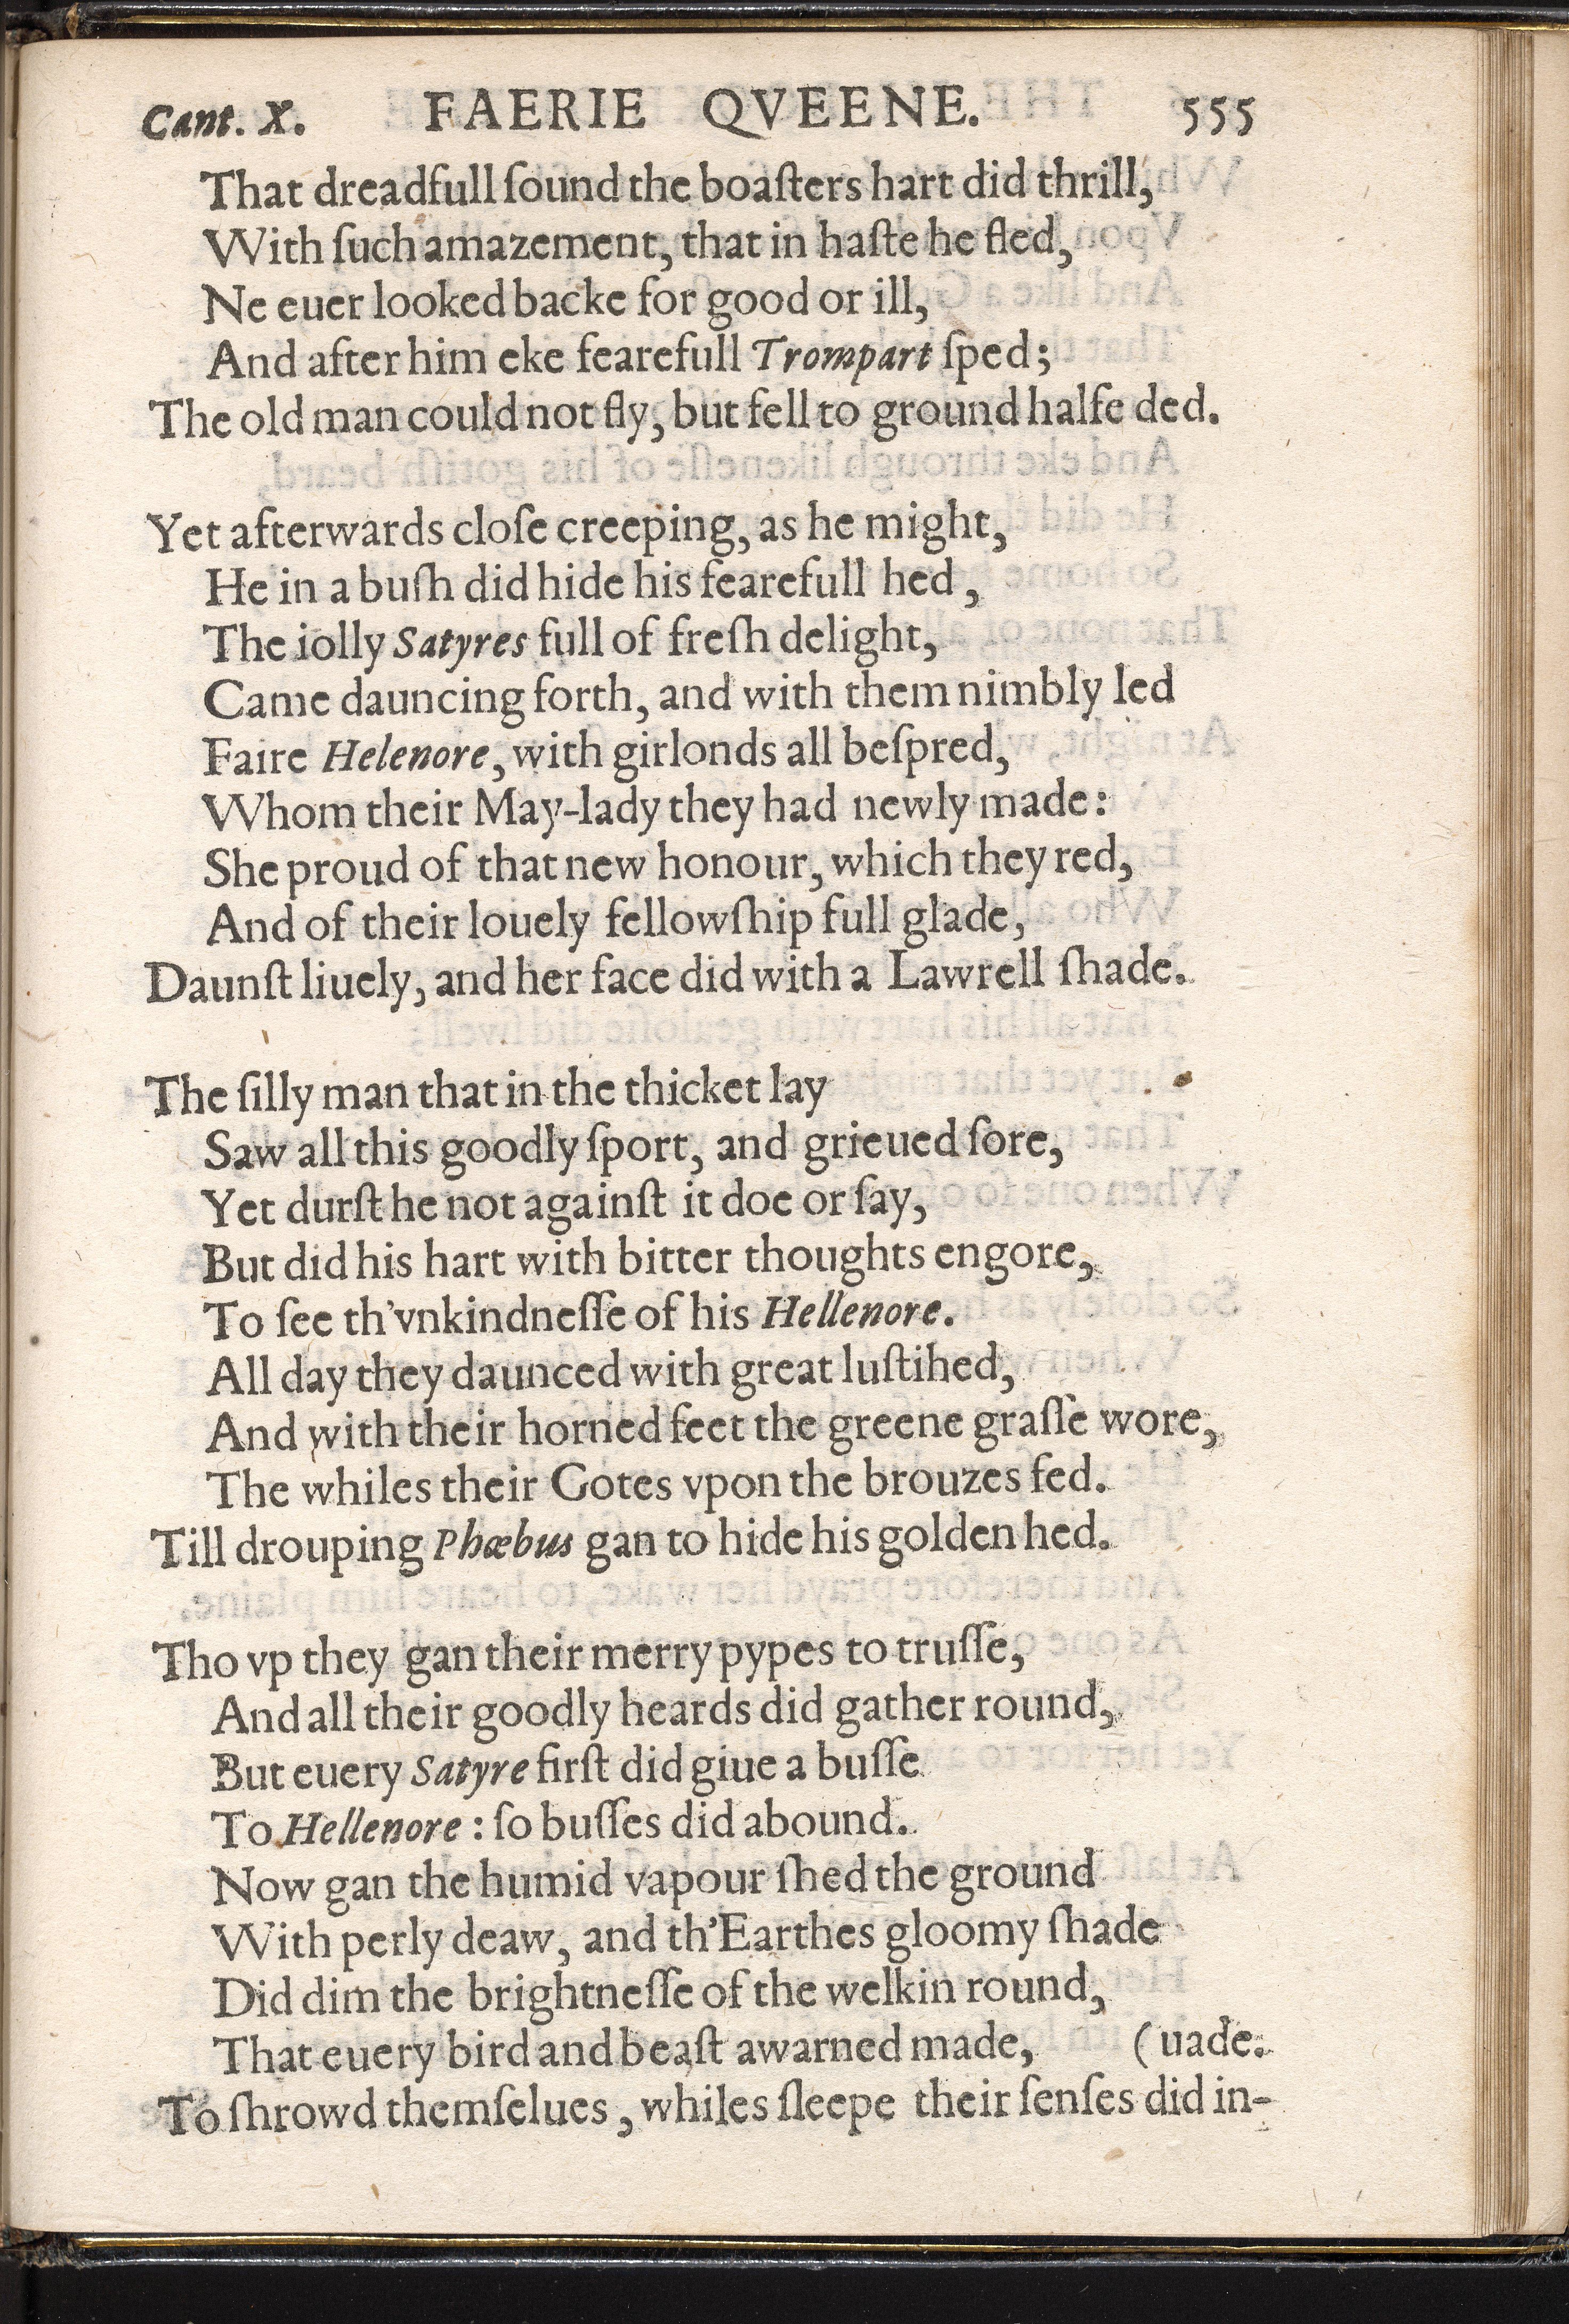 Cant. X. FAERIE QVEENE. 555
That dreadfull ſound the boaſters hart did thrill,
With ſuch amazement, that in haſte he fled,
Ne euer looked backe for good or ill,
And after him eke fearefull Trompart ſped;
The old man could not fly, but fell to ground halfe ded.
Yet afterwards cloſe creeping, as he might,
He in a buſh did hide his fearefull hed,
The iolly Satyres full of freſh delight,
Came dauncing forth, and with them nimbly led
Faire Helenore, with girlonds all beſpred,
Whom their May-lady they had newly made:
She proud of that new honour, which they red,
And of their louely fellowſhip full glade,
Daunſt liuely, and her face did with a Lawrell ſhade.
The ſilly man that in the thicket lay
Saw all this goodly ſport, and grieued ſore,
Yet durſt he not againſt it doe or ſay,
But did his hart with bitter thoughts engore,
To ſee th'vnkindneſſe of his Hellenore.
All day they daunced with great luſtihed,
And with their horned feet the greene graſſe wore,
The whiles their Gotes vpon the brouzes fed.
Till drouping Phœbus gan to hide his golden hed.
Tho vp they gan their merry pypes to truſſe,
And all their goodly heards did gather round,
But euery Satyre firſt did giue a buſſe
To Hellenore: ſo buſſes did abound.
Now gan the humid vapour ſhed the ground
With perly deaw, and th'Earthes gloomy ſhade
Did dim the brightneſſe of the welkin round,
That euery bird and beaſt awarned made, (uade.
To ſhrowd themſelues, whiles ſleepe their ſenſes did in-